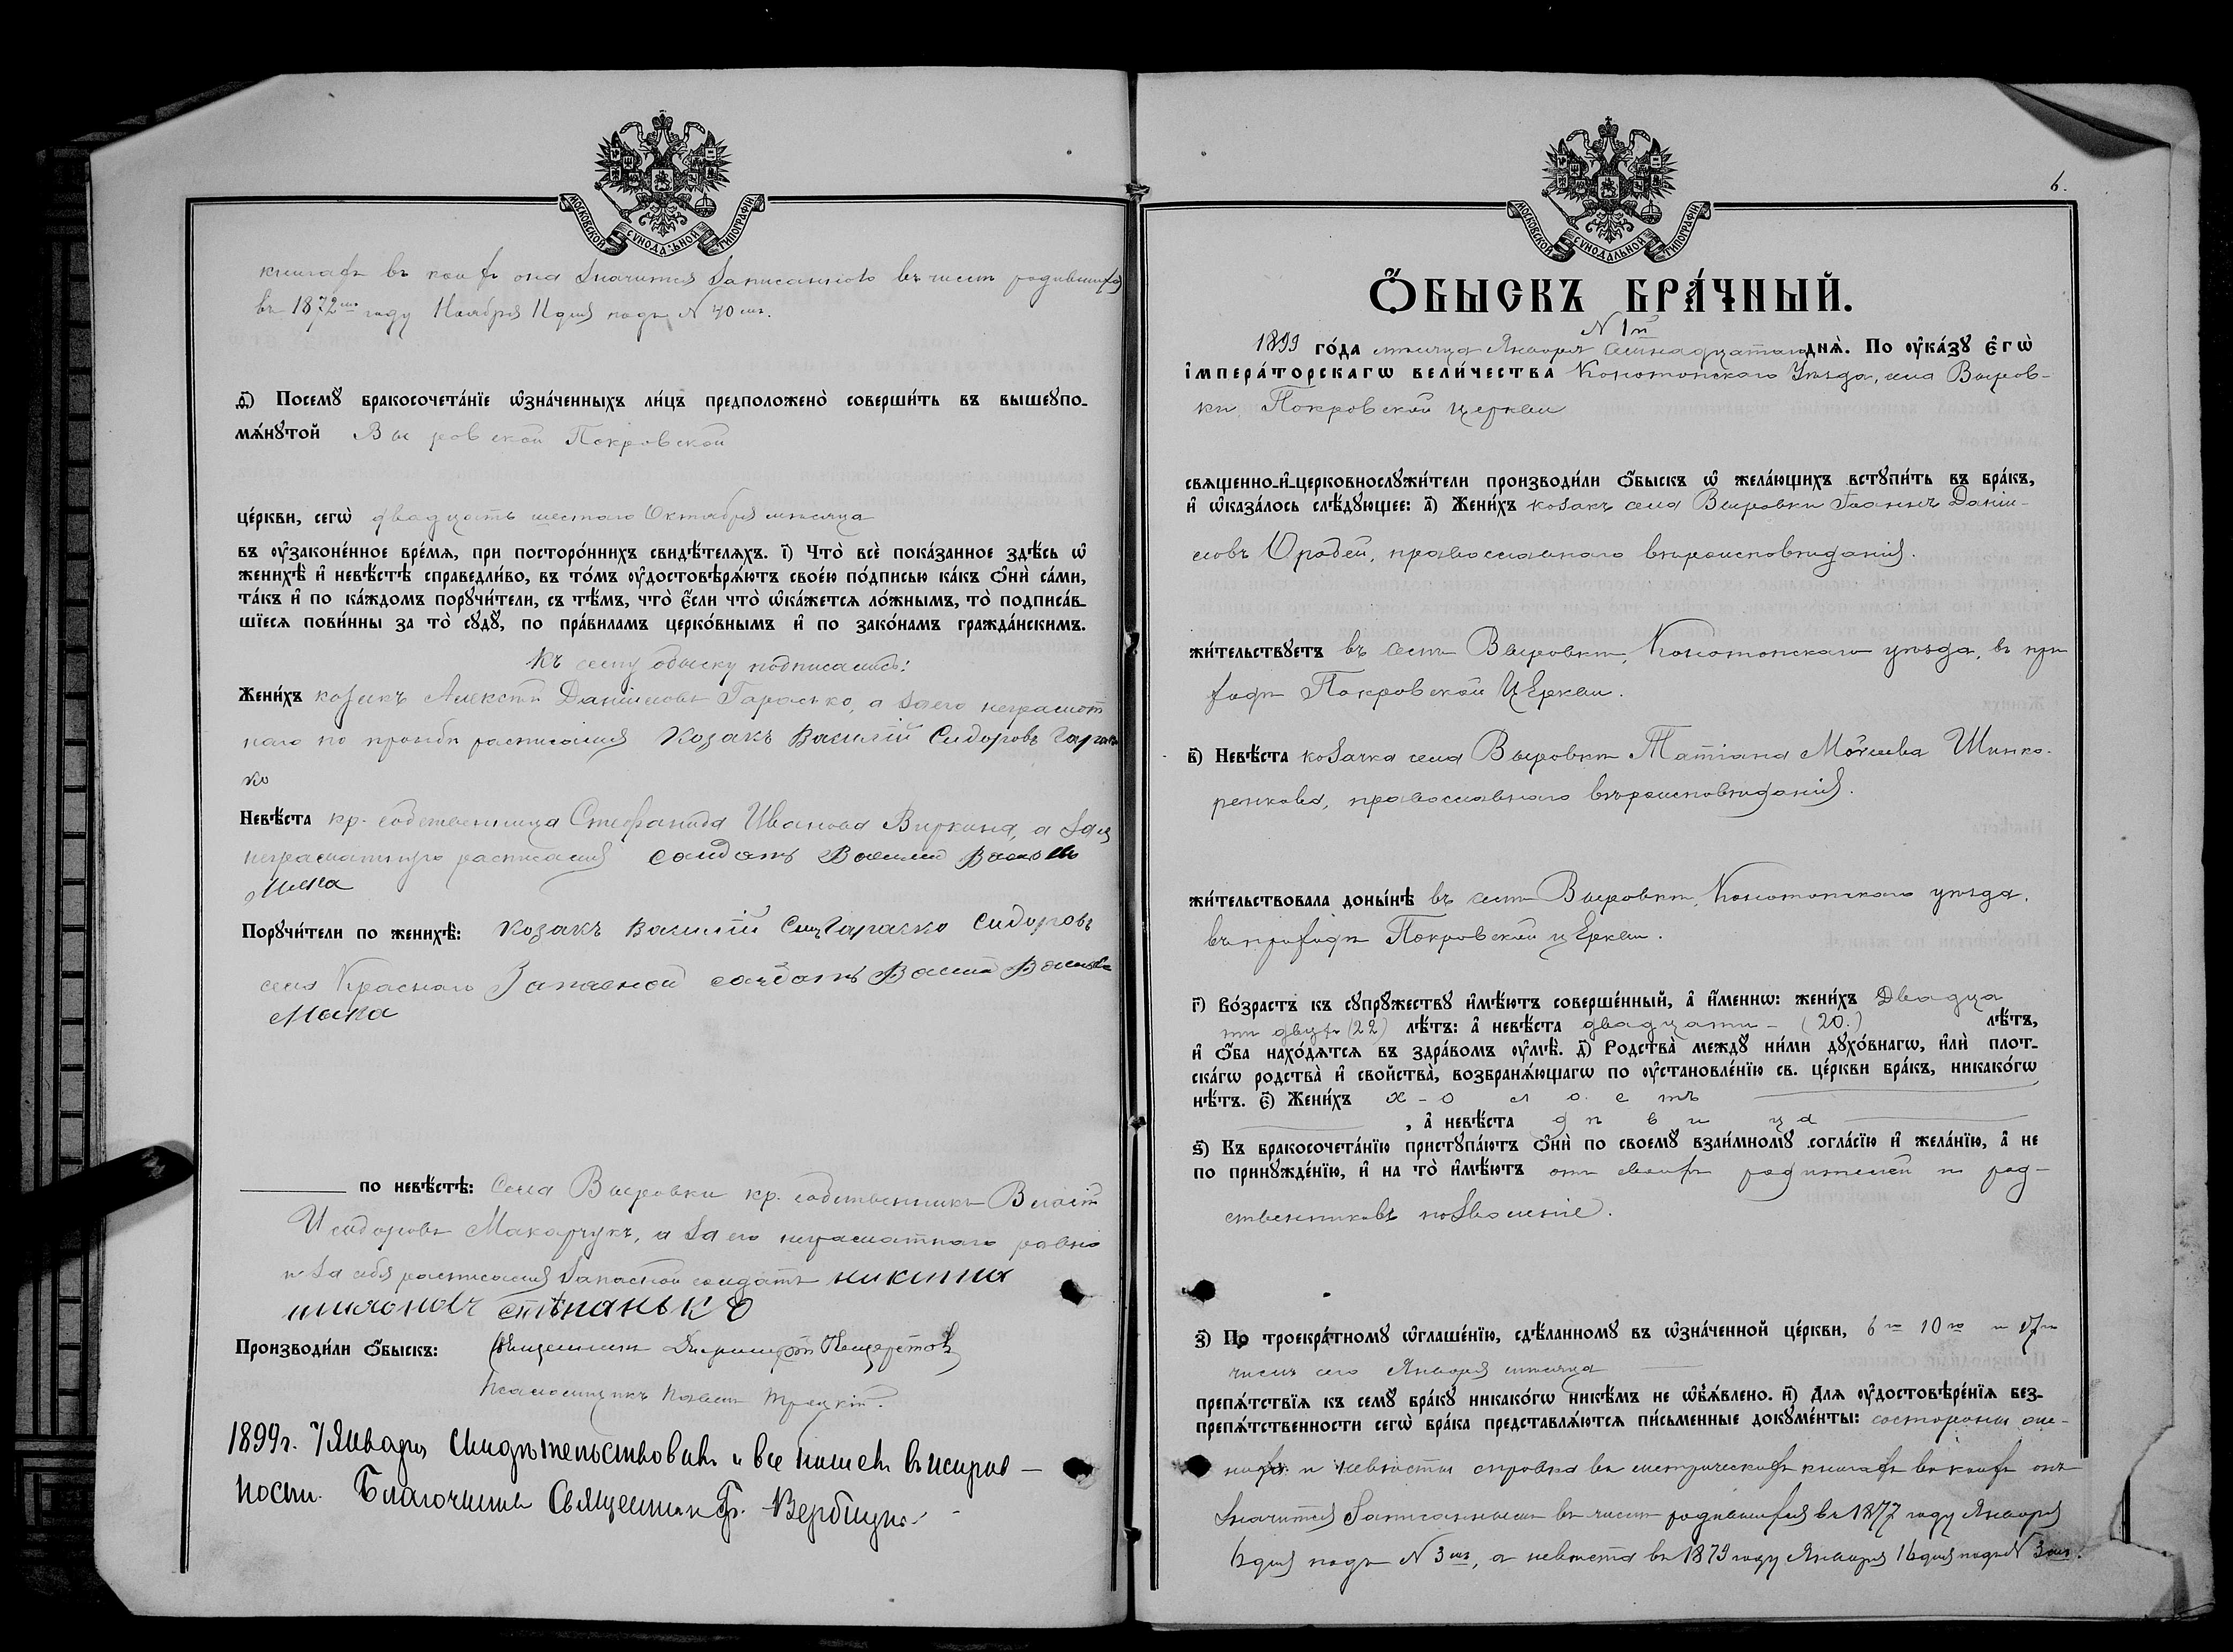 МОСКОВСКОЙ СѴНОДАЛЬНОЙ ТИПОГРАФІИ
книгахъ въ коихъ она значится записанною въ числѣ родившихся
въ 1872мъ году Ноября 11 дня подъ N 40мъ.
д҃) Посемꙋ бракосочета́нїе ѡ҆зна́ченныхъ ли́цъ предположено̀ соверши́ть въ вышеꙋпо-
мѧ́нꙋтой Выровской Покровской
це́ркви, сегѡ̀ двадцать шестаго Октября мѣсяца
въ ᲂу҆законе́нное вре́мѧ, при посторо́ннихъ свидѣ́телѧхъ. і҃) Что̀ всѐ пока́занное здѣ́сь ѡ҆
женихѣ̀ и҆ невѣ́стѣ справедли́во, въ то́мъ ᲂу҆достовѣрѧ́ютъ свое́ю по́дписью ка́къ ѻ҆нѝ са́ми,
та́къ и҆ по ка́ждомъ порꙋчи́тели, съ тѣ́мъ, что̀ є҆́сли что̀ ѡ҆ка́жетсѧ ло́жнымъ, то̀ подписа́в-
шїесѧ пови́нны за то̀ сꙋдꙋ̀, по пра́виламъ церко́внымъ и҆ по зако́намъ гражда́нскимъ.
Къ сему обыску подписались:
Жени́хъ козакъ Алексѣй Даніиловъ Гарасько, а за его неграмот
наго по прозьбѣ росписался Козакъ Василій Сидоровъ Гарась
ко
Невѣ́ста кр. собственница Стефанида Иванова Виркина, а за ея
неграмотную расписался солдатъ Василий
Порꙋчи́тели по женихѣ̀: Козакъ Василій Гарасько Сидоровъ
села Краснаго Запасной солдатъ
по невѣ́стѣ: Села Выровки кр. собственникъ Власій
Исидоровъ Макарчукъ, а за его неграмотнаго равно
и за себя расписался запасной солдатъ никита
стѣпанько
Производи́ли ѻ҆́быскъ: Священникъ Димитрій
Псаломщикъ Павелъ Троцкій.
1899г. 7 Января Свидѣтельствовалъ и все нашелъ въ исправ-
ности. Благочинный Священникъ Гр. Вербицкій
МОСКОВСКОЙ СѴНОДАЛЬНОЙ ТИПОГРАФІИ
6.
Ѻ҆́БЫСКЪ БРА́ЧНЫЙ.
N 1й
1899 го́да мѣсяца Января семнадцатаго днѧ̀. По ᲂу҆ка́зꙋ є҆гѡ̀
і҆мпера́торскагѡ вели́чества Конотопскаго Уѣзда, села Выров-
ки Покровской церкви
свѧщенно-и҆-церковнослꙋжи́тели производи́ли ѻ҆́быскъ ѡ҆ жела́ющихъ встꙋпи́ть въ бра́къ,
и҆ ѡ҆каза́лось слѣ́дꙋющее: а҃) Жени́хъ козакъ села Выровки Іоаннъ Даніи-
ловъ Продей, православнаго вѣроисповѣданія.
жи́тельствꙋетъ въ селѣ Выровкѣ, Конотопскаго уѣзда, въ при
ходѣ Покровской Церкви.
в҃) Невѣ́ста козачка села Выровки Татіана Моѵсеева Шинка-
ренкова, православнаго вѣроисповѣданія.
жи́тельствовала доны́нѣ въ селѣ Выровкѣ, Конотопскаго уѣзда,
въ приходѣ Покровской церкви.
г҃) Во́зрастъ къ сꙋпрꙋ́жествꙋ и҆мѣ́ютъ соверше́нный, а҆ и҆́меннѡ: жени́хъ Двадца
ти двухъ (22) лѣ́тъ: а҆ невѣ́ста двадцати - (20.) лѣ́тъ,
и҆ ѻ҆́ба нахо́дѧтсѧ въ здра́вомъ ᲂу҆мѣ̀. д҃) Родства̀ междꙋ̀ ни́ми дꙋхо́внагѡ, и҆лѝ плот-
ска́гѡ родства̀ и҆ свойства̀, возбранѧ́ющагѡ по ᲂу҆становле́нїю св. це́ркви бра́къ, никако́гѡ
нѣ́тъ. є҃) Жени́хъ х-о л о с тъ
, а҆ невѣ́ста д ѣ в и ца
ѕ҃) Къ бракосочета́нїю пристꙋпа́ютъ ѻ҆нѝ по своемꙋ̀ взаи́мномꙋ согла́сїю и҆ жела́нїю, а҆ не
по принꙋжде́нїю, и҆ на то̀ и҆мѣ́ютъ отъ своихъ родителей и род-
ственниковъ позволеніе.
з҃) По троекра́тномꙋ ѡ҆глаше́нїю, сдѣ́ланномꙋ въ ѡ҆зна́ченной це́ркви, 6го 10го и 17го
чиселъ сего Января мѣсяца
препѧ́тствїѧ къ семꙋ̀ бра́кꙋ никако́гѡ никѣ́мъ не ѡ҆б̾ѧ́влено. и҃) Длѧ ᲂу҆достовѣре́нїѧ без-
препѧ́тственности сегѡ̀ бра́ка представлѧ́ютсѧ пи́сьменные докꙋме́нты: со стороны же-
ниха и невѣсты справка въ метрическихъ книгахъ въ коихъ онъ
значится записаннымъ въ числѣ родившихся въ 1877 году Января
6 дня подъ N 3мъ, а невѣста въ 1879 году Января 16 дня подъ N 3мъ.